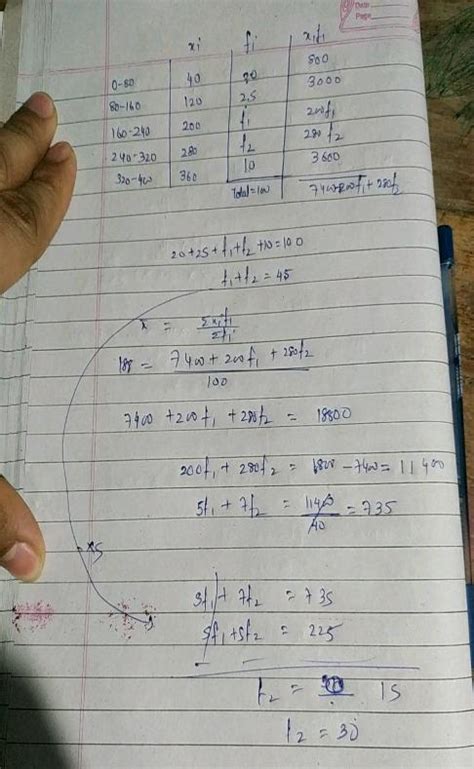 Date
Page
xi fi xifi
0-80 40 20 800
80-160 120 25 3000
160-240 200 f₁ 200f₁
240-320 280 f₂ 280f₂
320-400 360 10 3600
Total=100 7400+200f₁+280f₂
20+25+f₁+f₂+10=100
f₁+f₂=45
x = Σxifi/Σfi
188 = 7400+200f₁+280f₂/100
7400+200f₁+280f₂ = 18800
200f₁+280f₂ = 18800-7400=11400
5f₁+7f₂ = 11400/40 =735
x5
5f₁+7f₂ =735
5f₁+5f₂ = 225
-
f₂ = 15
f₂=30